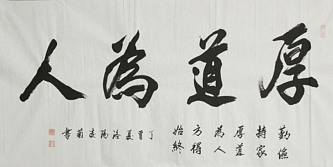 厚道為人
勤儉
持家
厚道
為人
方得
始終
丁酉夏洛陽建菊書